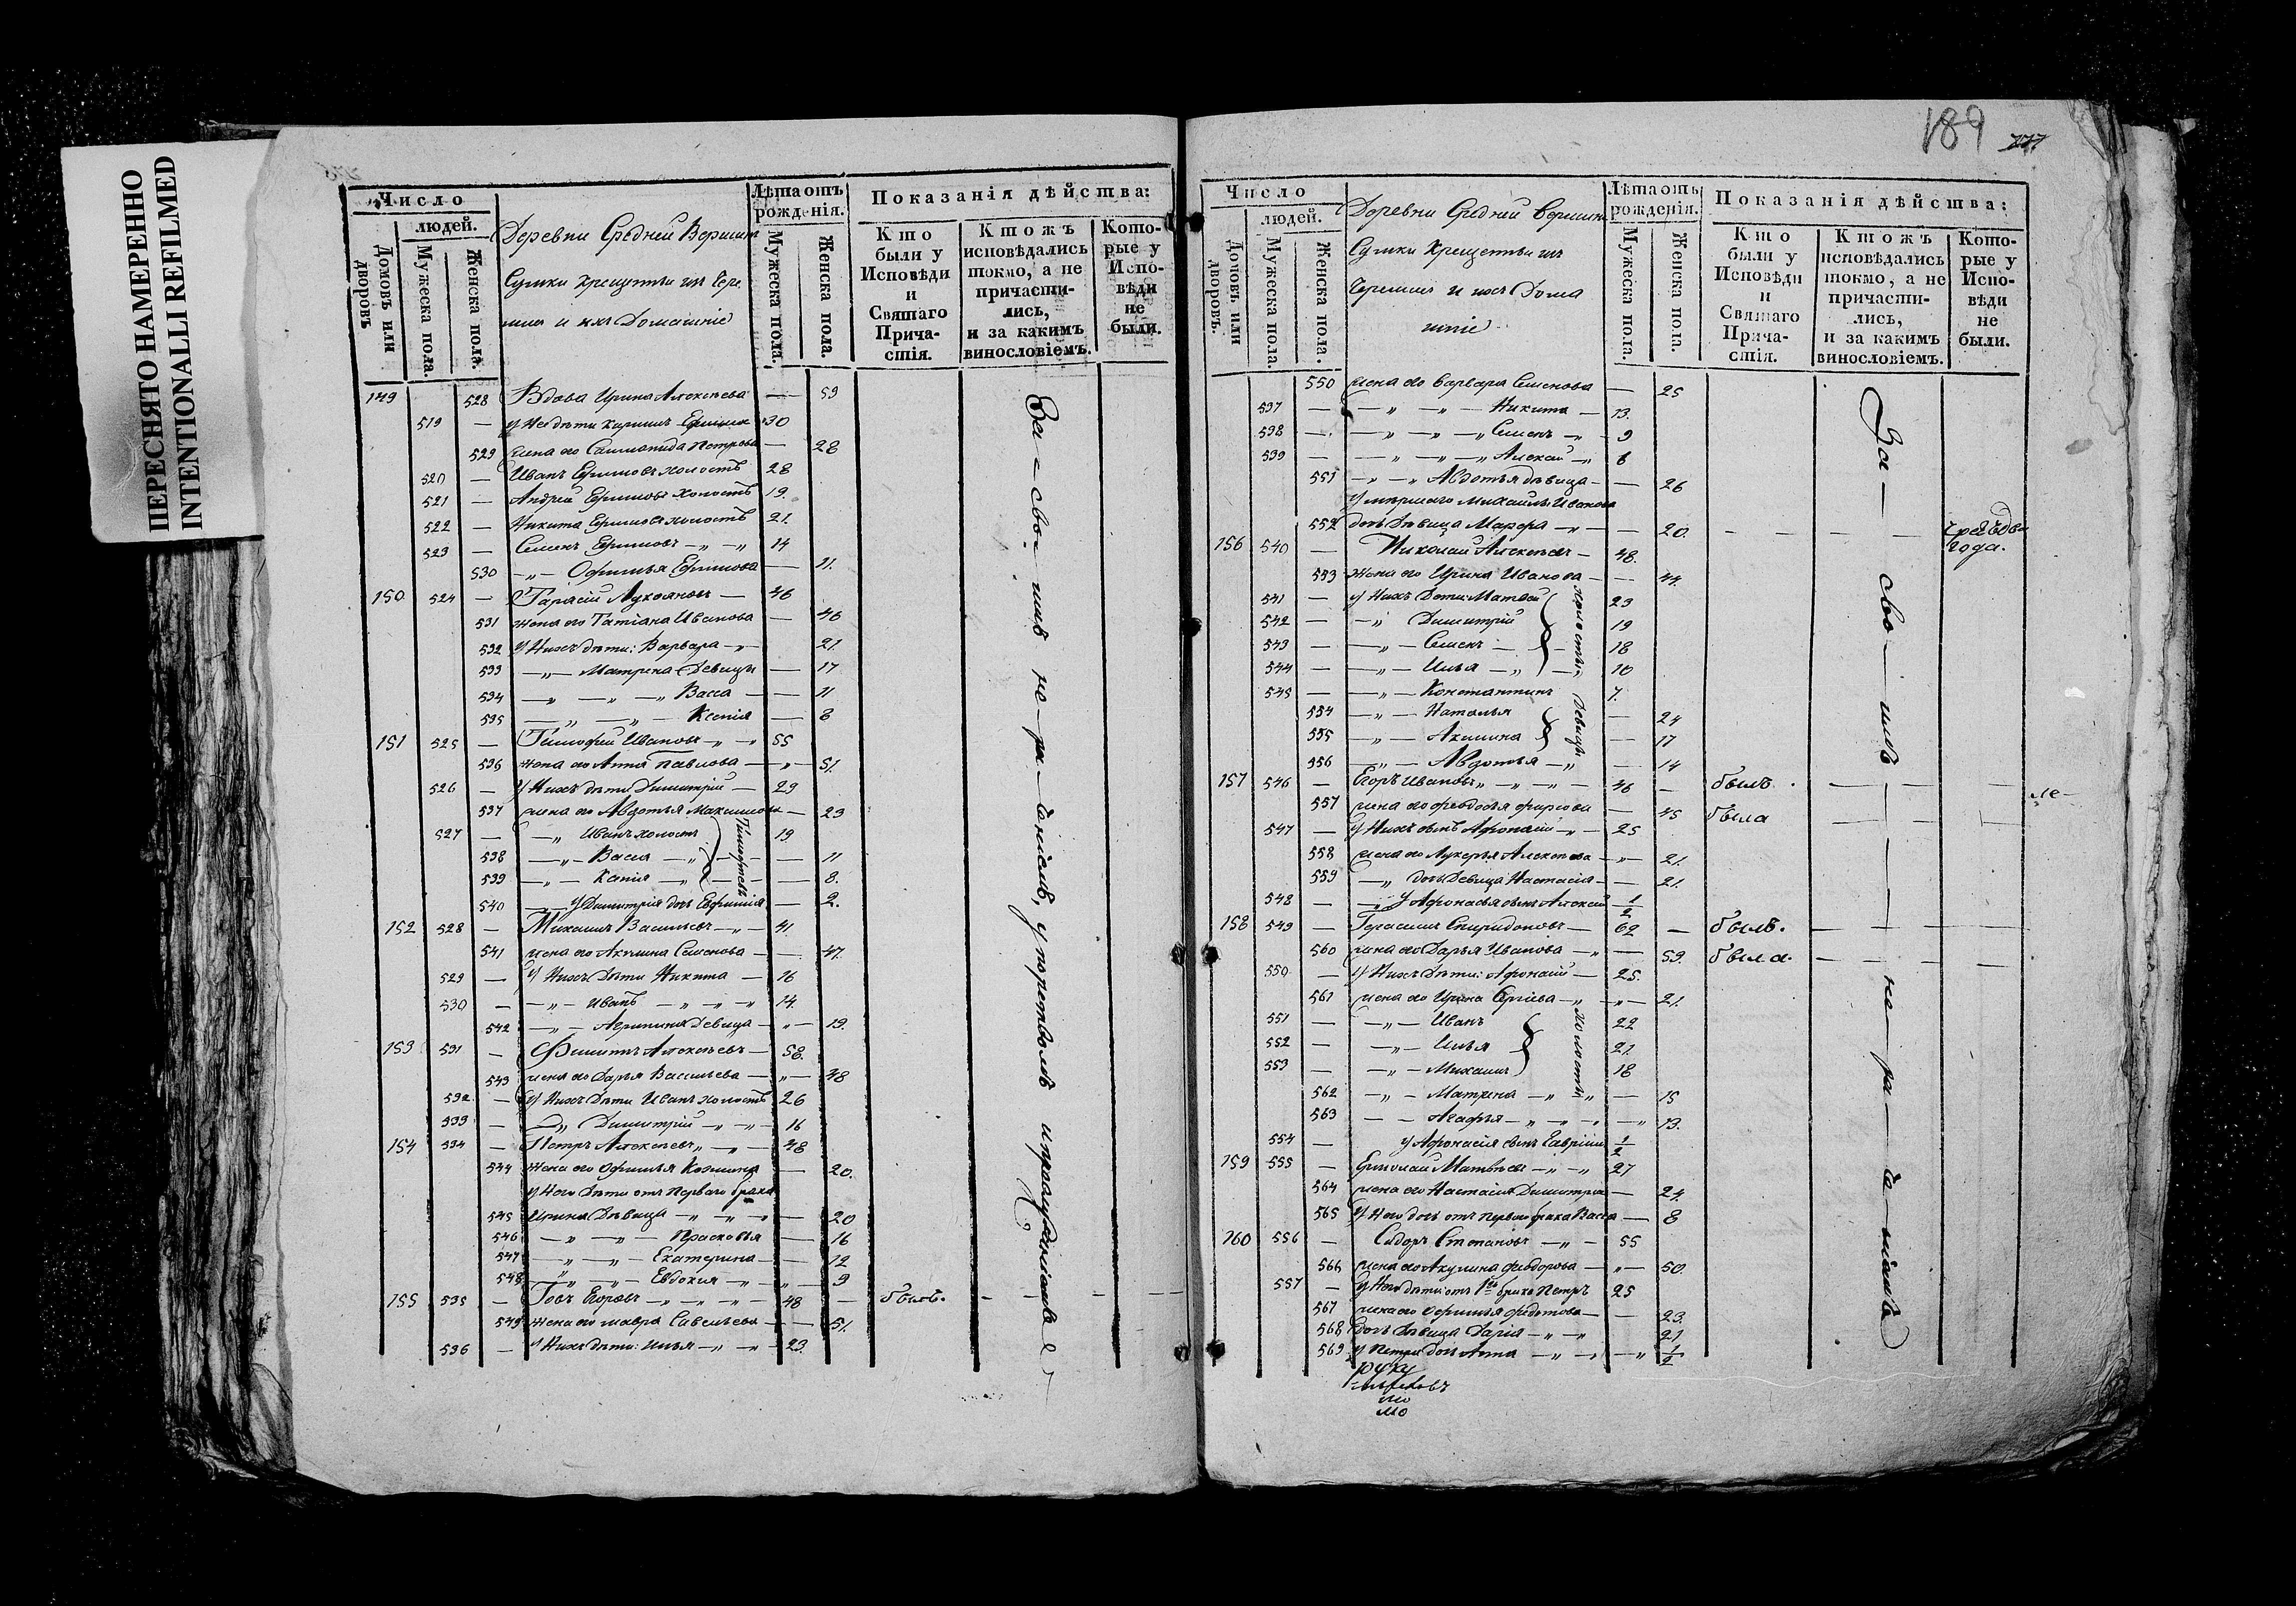 ПЕРЕСНЯТО НАМЕРЕННО
INTENTIONALLI REFILMED
Число
людей.
Домовъ или дворовъ
Мужеска пола.
Женска пола.
Деревни Средней Вершин
Сумки Крещеныи изъ Чере
миш и ихъ Домашніе
Лѣта отъ рожденія.
Мужеска пола.
Женска пола.
Показанія дѣйства:
Кто были у Исповѣди и Святаго Причастія.
Ктожъ исповѣдались токмо, а не причастились, и за какимъ винословіемъ.
Которые у Исповѣди не были.
149 528 Вдова Ирина Алексѣева — 59
519 — У Нея дѣти Кирилъ Ефимов 30
529 жена его Саломанида Петрова — 28
520 — Иванъ Ефимовъ холостъ 28
521 — Андрей Ефимовъ холостъ 19.
522 — Никита Ефимовъ холостъ 21.
523 — Семенъ Ефимовъ — „ — „ 14
530 — „ — Офимья Ефимова — 11.
150 524 — Гарасій Лукояновъ — 46
531 жена его Татіана Иванова — 46
532 У Нихъ дѣти: Варвара — „ — 21.
533 — „ — Матрена Девицы — 17
534 — „ — „ — „ Васса — — 11
535 — „ — „ — Ксенія — 8
151 525 — Тимофей Ивановъ — „ — „ 55
536 жена его Анна Павлова — „ — 51.
526 — У Нихъ дѣти Димитрій — 29
537 жена его Авдотья Максимова — 23
527 — — „ Иванъ холостъ 19
538 — „ — Васса — „ — — 11
539 — „ — Ксенія — „ — — 8.
Тимофѣевы
540 — У Димитрія дочь Евфимія — 2.
152 528 — Михаилъ Васильевъ — „ — 41.
541 жена его Акилина Семенова — — 47.
529 — У Нихъ Дѣти Никита — 16
530 — — „ — Иванъ — „ — „ — „ 14.
542 — „ — Агрипина Девица — „ — 19.
153 531 — Филипъ Алексѣевъ — 58.
543 жена его Дарья Васильева — „ — 48
532 — У Нихъ Дѣти Иванъ холостъ 26
533 — — „ Димитрій — „ — „ — 16
154 534 — Петръ Алексѣевъ „ — „ — 48
544 жена его Офимья Козмина — 20.
У Него дѣти отъ Перваго брака
545 Ирина Дѣвица — „ — „ — 20
546 — „ — „ — Прасковья — 16
547 — „ — „ — Екатерина — 12
548 — „ — „ — Евдокия — „ — „ — 9
155 535 — Іовъ Егоровъ — „ — „ — „ — 48 — былъ. — — — —
549 жена его Мавра Савельева — — 51.
536 — У Нихъ дѣти: Илья — „ — „ — 23.
За — сво — имъ не — ра — дѣніемъ, упорствомъ
189
277
Число
людей.
Домовъ или дворовъ.
Мужеска пола.
Женска пола.
Деревни Средней Вершин
Сумки Крещеныи изъ
Черемиш и ихъ Дома
шніе
Лѣта отъ рожденія.
Мужеска пола.
Женска пола.
Показанія дѣйства:
Кто были у Исповѣди и Святаго Причастія.
Ктожъ исповѣдались токмо, а не причастились, и за какимъ винословіемъ.
Которые у Исповѣди не были.
550 жена его Варвара Семенова — 25
537 — — „ — „ — Никита — 13.
538 — — „ — „ — „ Семенъ — „ — 9
539 — — „ — „ — „ Алексей — „ 6
551 — „ — „ Авдотья дѣвица — — 26
У умершаго Михаила Иванова
552 дочь дѣвица Марфа — „ — — 20. — — — —
года.
156 540 — Николай Алексѣевъ — 48.
553 жена его Ирина Иванова — — 44.
541 — У Нихъ Дѣти: Матвей 23
542 — — „ Димитрій 19
543 — — „ — Семенъ — 18
544 — — „ — Илья — „ 10
холосты
545 — — „ — Константинъ 7.
554 — „ — Наталья — 24
555 — „ — Акилина — 17
556 — „ — Авдотья — „ — 14
Девицы
157 546 — Егоръ Ивановъ „ — „ — „ — 46 — былъ. — — —
557 жена его Феодосья Фирсова — 45 была — — —
547 — У Нихъ сынъ Афонасій — „ — 25
558 жена его Лукерья Алексѣева — „ — 21.
559 — „ дочь Девица Настасія — — 21.
548 — — „ У Афонасья сынъ Алексей 1/2
158 549 — Герасимъ Спиридоновъ — 62 — былъ. — — —
560 жена его Дарья Иванова — „ — 59. была. — — —
550 — У Нихъ Дѣти: Афонасій — 25.
561 жена его Ирина Сергѣева — „ — „ — 21.
551 — — „ — Иванъ 22
552 — — „ — Илья 21.
553 — — „ — Михаилъ 18
холосты
562 — „ — Матрена — „ — „ — 15
563 — — Агафья — „ — „ — „ 13.
554 — У Афонасія сынъ Гавріилъ 1/2
159 555 — Ермолай Матвѣевъ — „ — „ 27
564 жена его Настасія Димитріева — 24.
565 У Него дочь отъ перваго брака Васса — 8
160 556 — Сидоръ Степановъ — „ — 55
566 жена его Акулина Феодорова — „ — 50.
557 — У Него дѣти отъ 1го брака Петръ 25
567 жена его Офимья Федотова — — 23.
568 дочь дѣвица Дарія — „ — „ 21
569 У Петра дочь Анна — „ — „ — „ 1/2
За — сво — имъ — — — не — ра — дѣ — ніемъ